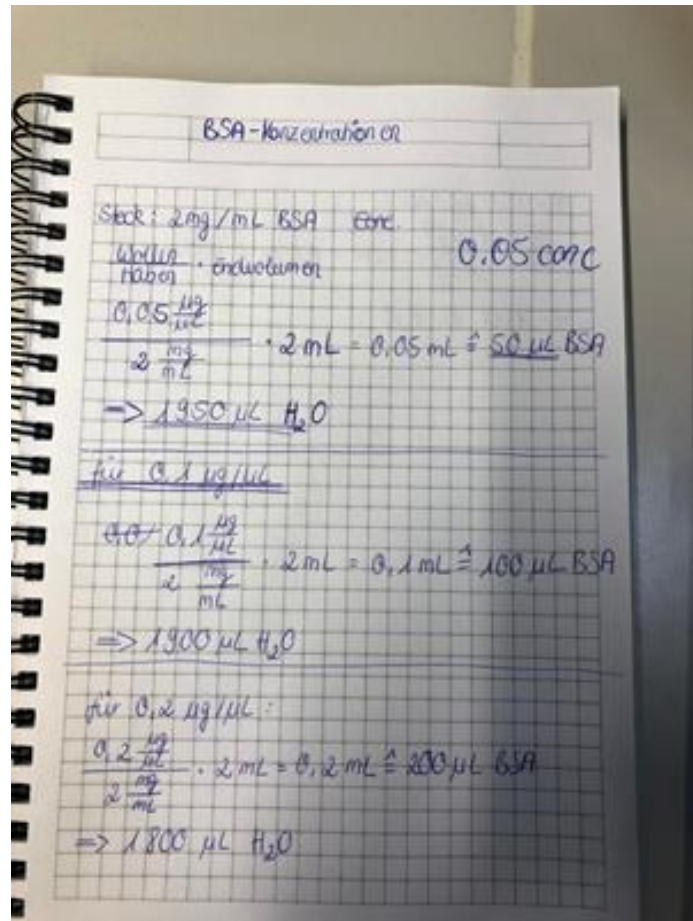 BSA-Konzentrationen
Stock: 2mg/mL BSA conc.
0.05 conc
Wollen
Haben · Endvolumen
0,05 µg/µL
2 mg/mL · 2 mL = 0,05 mL ≙ 50 µL BSA
=> 1950 µL H₂O
für 0,1 µg/µL
0,0 0,1 µg/µL
2 mg/mL · 2 mL = 0,1 mL ≙ 100 µL BSA
=> 1900 µL H₂O
für 0,2 µg/µL:
0,2 µg/µL
2 mg/mL · 2 mL = 0,2 mL ≙ 200 µL BSA
=> 1800 µL H₂O